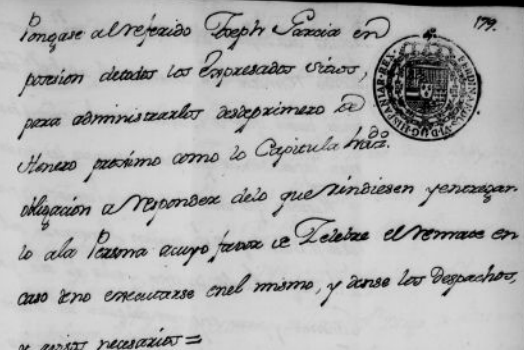 179.
Pongase al referido Joseph Garcia en
posesion de todos los Expresados sitios,
para administrarlos desde primero de
Henero proximo como lo Capitula haz.do
obligación a responder delo que rindiesen y entregar
lo ala Persona acuyo favor se Zelebre el remate en
caso deno executarse enel mismo, y dense los Despachos,
y avisos necesarios =
FERDINANDUS VI D G HISPANIAR REX